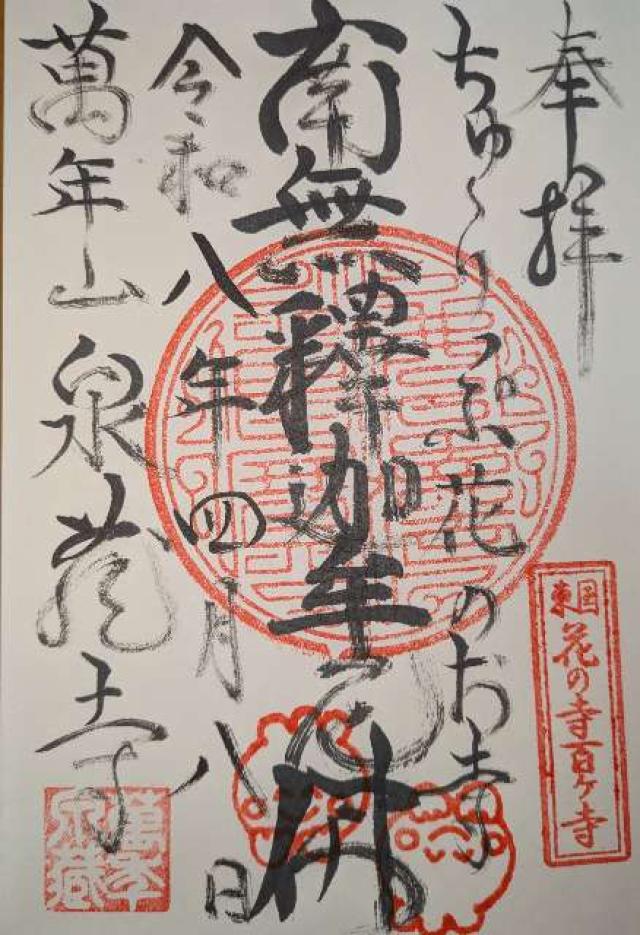 奉拝
ちゅうりっぷ花のお寺
南無釋迦牟尼佛
令和八年四月八日
萬年山泉蔵寺
東国
花の寺百ヶ寺